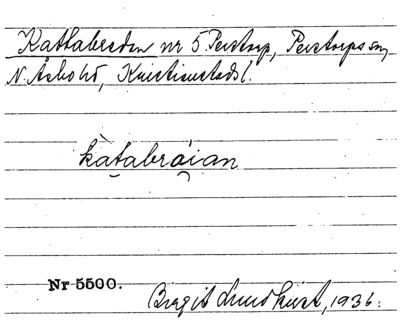 Kattabredan nr 5 Perstorp, Perstorps sn,
N. Åsbo hd, Kristianstads l.
kàtabráian
Nr 5500.
Birgit Lundkvist, 1936.